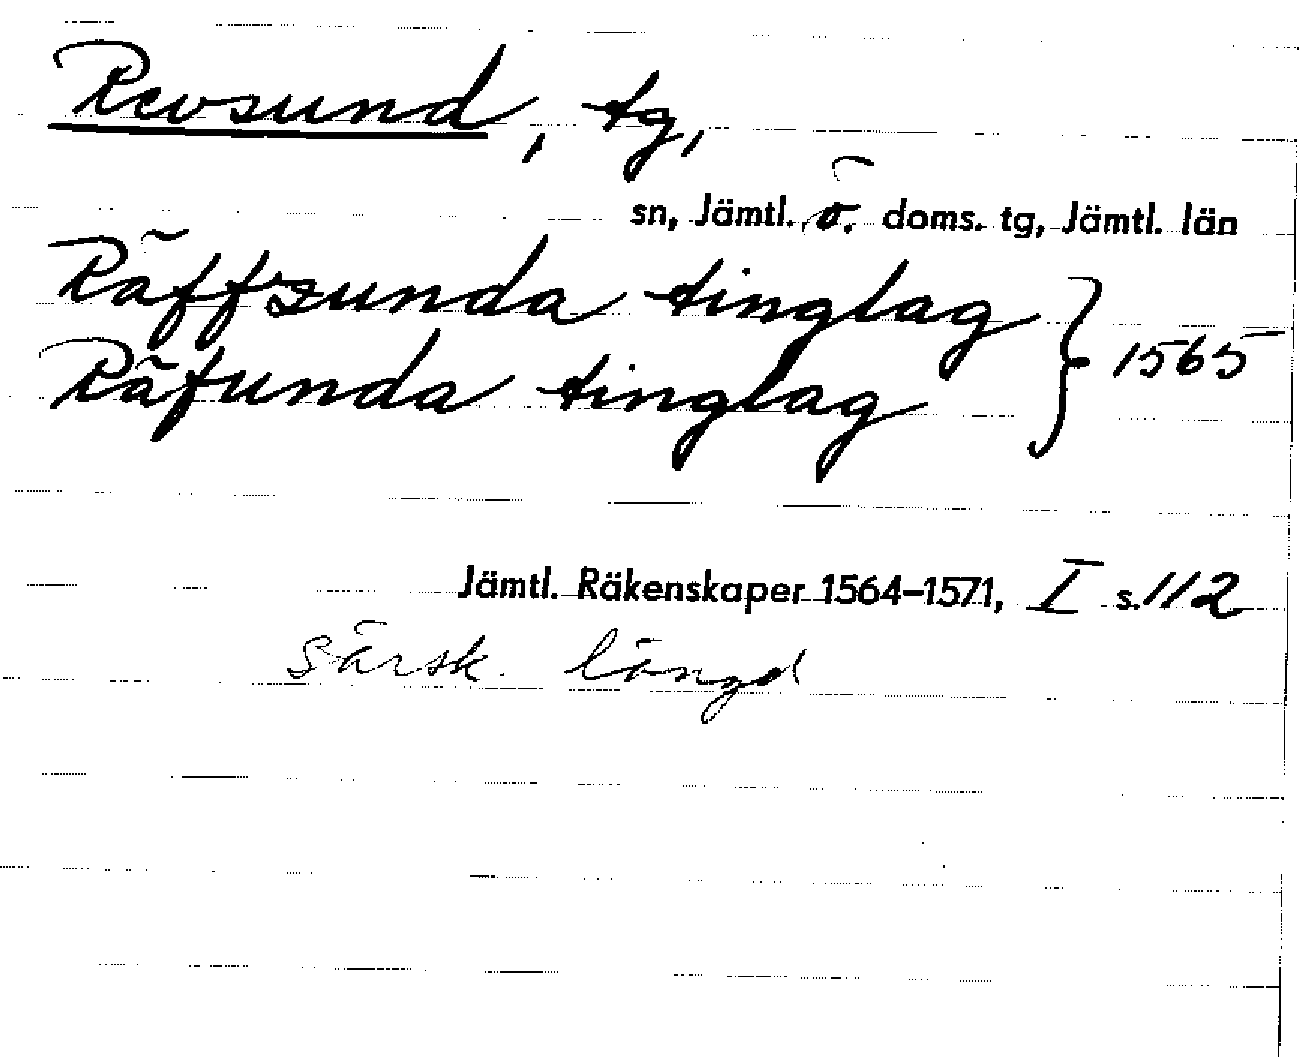 Revsund, tg,
sn, Jämtl. ö. doms. tg, Jämtl. län
Räffzunda tinglag
Räfunda tinglag } 1565
Jämtl. Räkenskaper 1564–1571, I s. 112
Särsk. längd